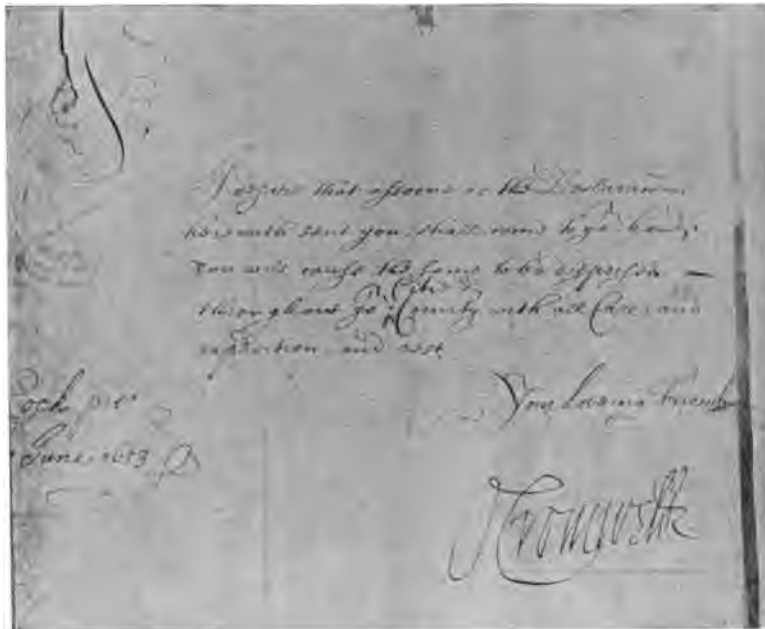 I desire that assoone as the Declarations
herewith sent you, shall come to yor hand,
you will cause the same to be dispersed
Citie &
throughout yor County with all Care and
expedition, and rest
Your Loving Friend
Cockpit
June 1653
O Cromwell